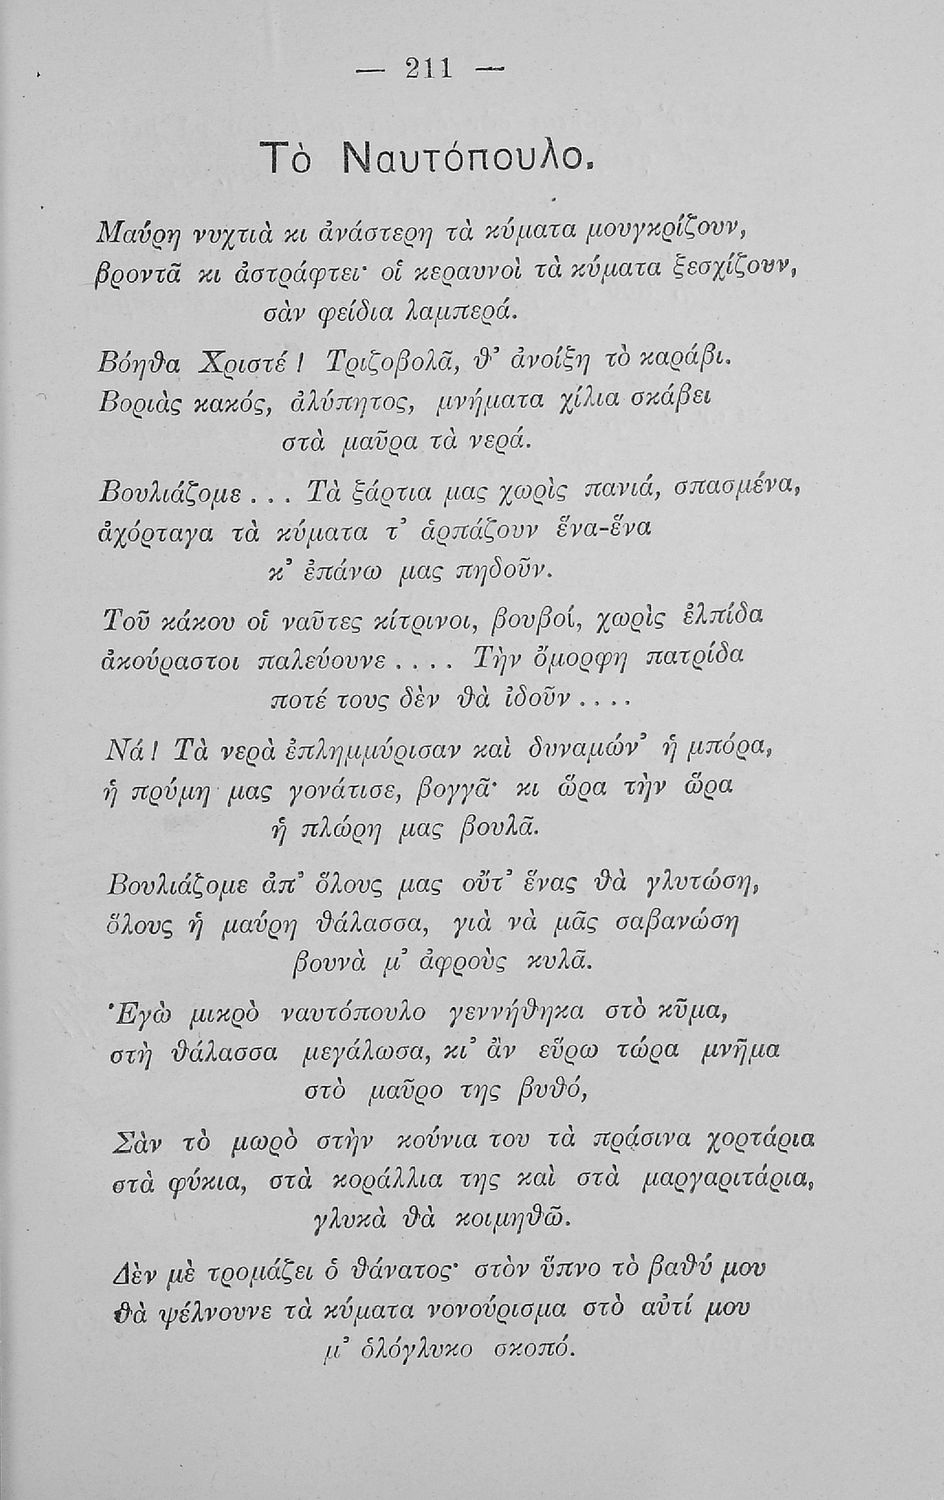 — 211 —
Τὸ Ναυτόπουλο.
Μαύρη νυχτιὰ κι ἀνάστερη τὰ κύματα μουγκρίζουν,
βροντᾶ κι ἀστράφτει· οἱ κεραυνοὶ τὰ κύματα ξεσχίζουν,
σὰν φείδια λαμπερά.
Βόηθα Χριστέ ! Τριζοβολᾶ, θ’ ἀνοίξῃ τὸ καράβι.
Βοριὰς κακός, ἀλύπητος, μνήματα χίλια σκάβει
στὰ μαῦρα τὰ νερά.
Βουλιάζομε . . . Τὰ ξάρτια μας χωρὶς πανιά, σπασμένα,
ἀχόρταγα τὰ κύματα τ’ ἁρπάζουν ἕνα-ἕνα
κ’ ἐπάνω μας πηδοῦν.
Τοῦ κάκου οἱ ναῦτες κίτρινοι, βουβοί, χωρὶς ἐλπίδα
ἀκούραστοι παλεύουνε . . . . Τὴν ὄμορφη πατρίδα
ποτέ τους δὲν θὰ ἰδοῦν . . . .
Νά ! Τὰ νερὰ ἐπλημμύρισαν καὶ δυναμών’ ἡ μπόρα,
ἡ πρύμη μας γονάτισε, βογγᾶ· κι ὥρα τὴν ὥρα
ἡ πλώρη μας βουλᾶ.
Βουλιάζομε ἀπ’ ὅλους μας οὔτ’ ἕνας θὰ γλυτώσῃ,
ὅλους ἡ μαύρη θάλασσα, γιὰ νὰ μᾶς σαβανώσῃ
βουνὰ μ’ ἀφροὺς κυλᾶ.
Ἐγὼ μικρὸ ναυτόπουλο γεννήθηκα στὸ κῦμα,
στὴ θάλασσα μεγάλωσα, κι’ ἂν εὕρω τώρα μνῆμα
στὸ μαῦρο της βυθό,
Σὰν τὸ μωρὸ στὴν κούνια του τὰ πράσινα χορτάρια
στὰ φύκια, στὰ κοράλλια της καὶ στὰ μαργαριτάρια,
γλυκὰ θὰ κοιμηθῶ.
Δὲν μὲ τρομάζει ὁ θάνατος· στὸν ὕπνο τὸ βαθύ μου
θὰ ψέλνουνε τὰ κύματα νονούρισμα στὸ αὐτί μου
μ’ ὁλόγλυκο σκοπό.